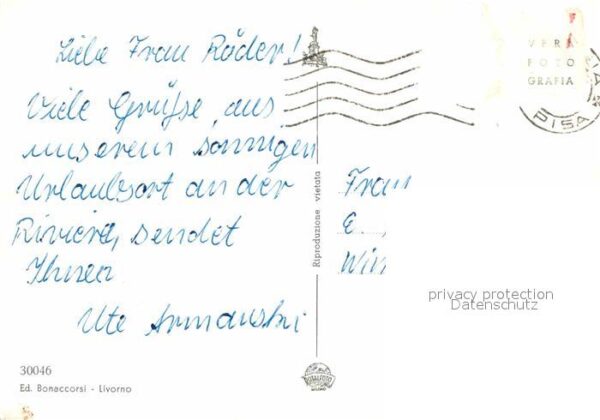 Liebe Frau Räder!
Viele Grüße aus
unserem sonnigen
Urlaubsort an der
Riviera, sendet
Ihnen
Ute
30046
Ed. Bonaccorsi - Livorno
Riproduzione vietata
VERA
FOTO
GRAFIA
PISA
Frau
E
Win
privacy protection
Datenschutz